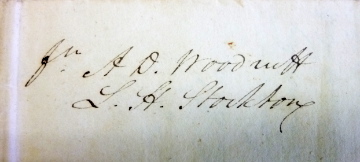 fr A D. Woodruff
L. H. Stockton